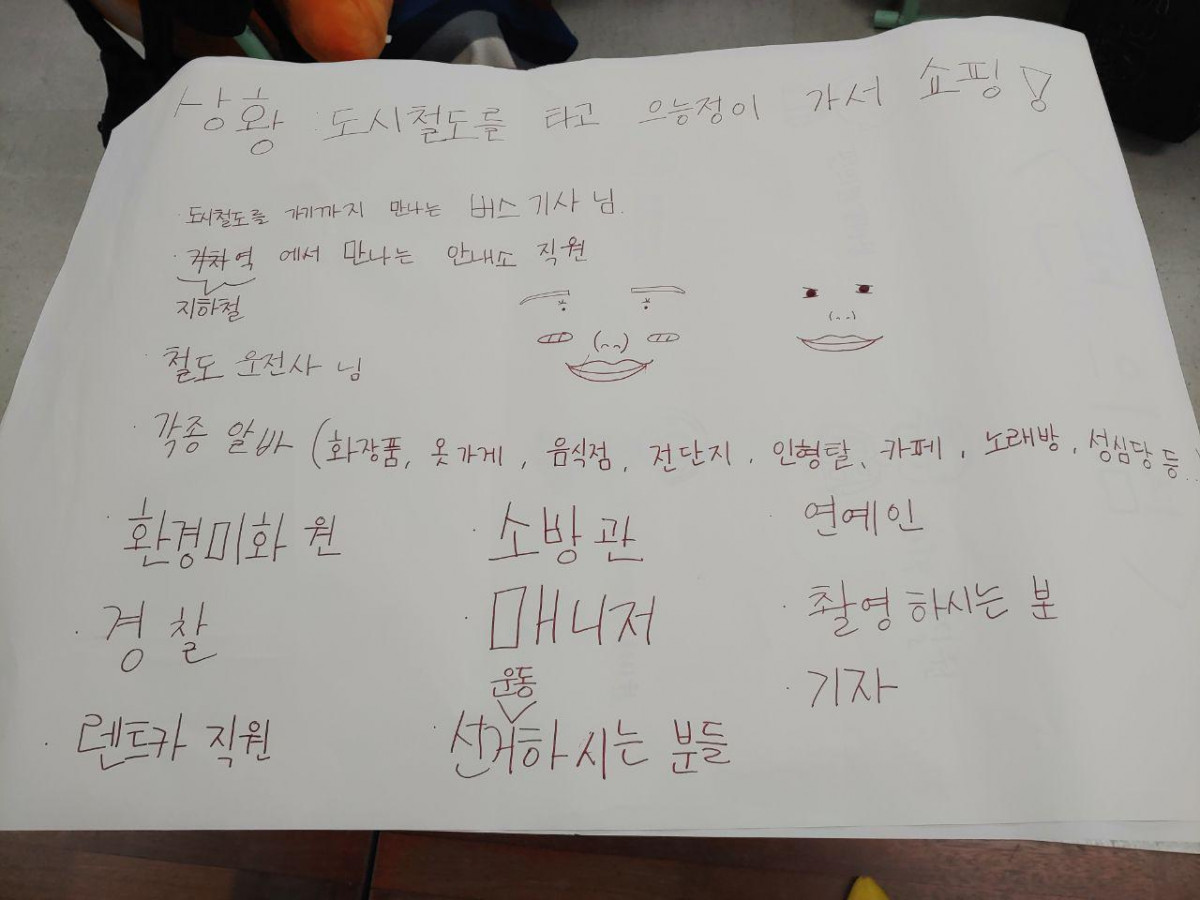 상황 : 도시철도를 타고 으능정이 가서 쇼핑!
· 도시철도를 가기까지 만나는 버스 기사 님.
· 각차역 에서 만나는 안내소 직원
지하철
· 철도 운전사 님
· 각종 알바 (화장품, 옷가게, 음식점, 전단지, 인형탈, 카페, 노래방, 성심당 등..)
· 환경미화 원
· 소방관
· 연예인
· 경찰
· 매니저
· 촬영 하시는 분
운동
· 기자
· 렌트카 직원
· 선거하시는 분들